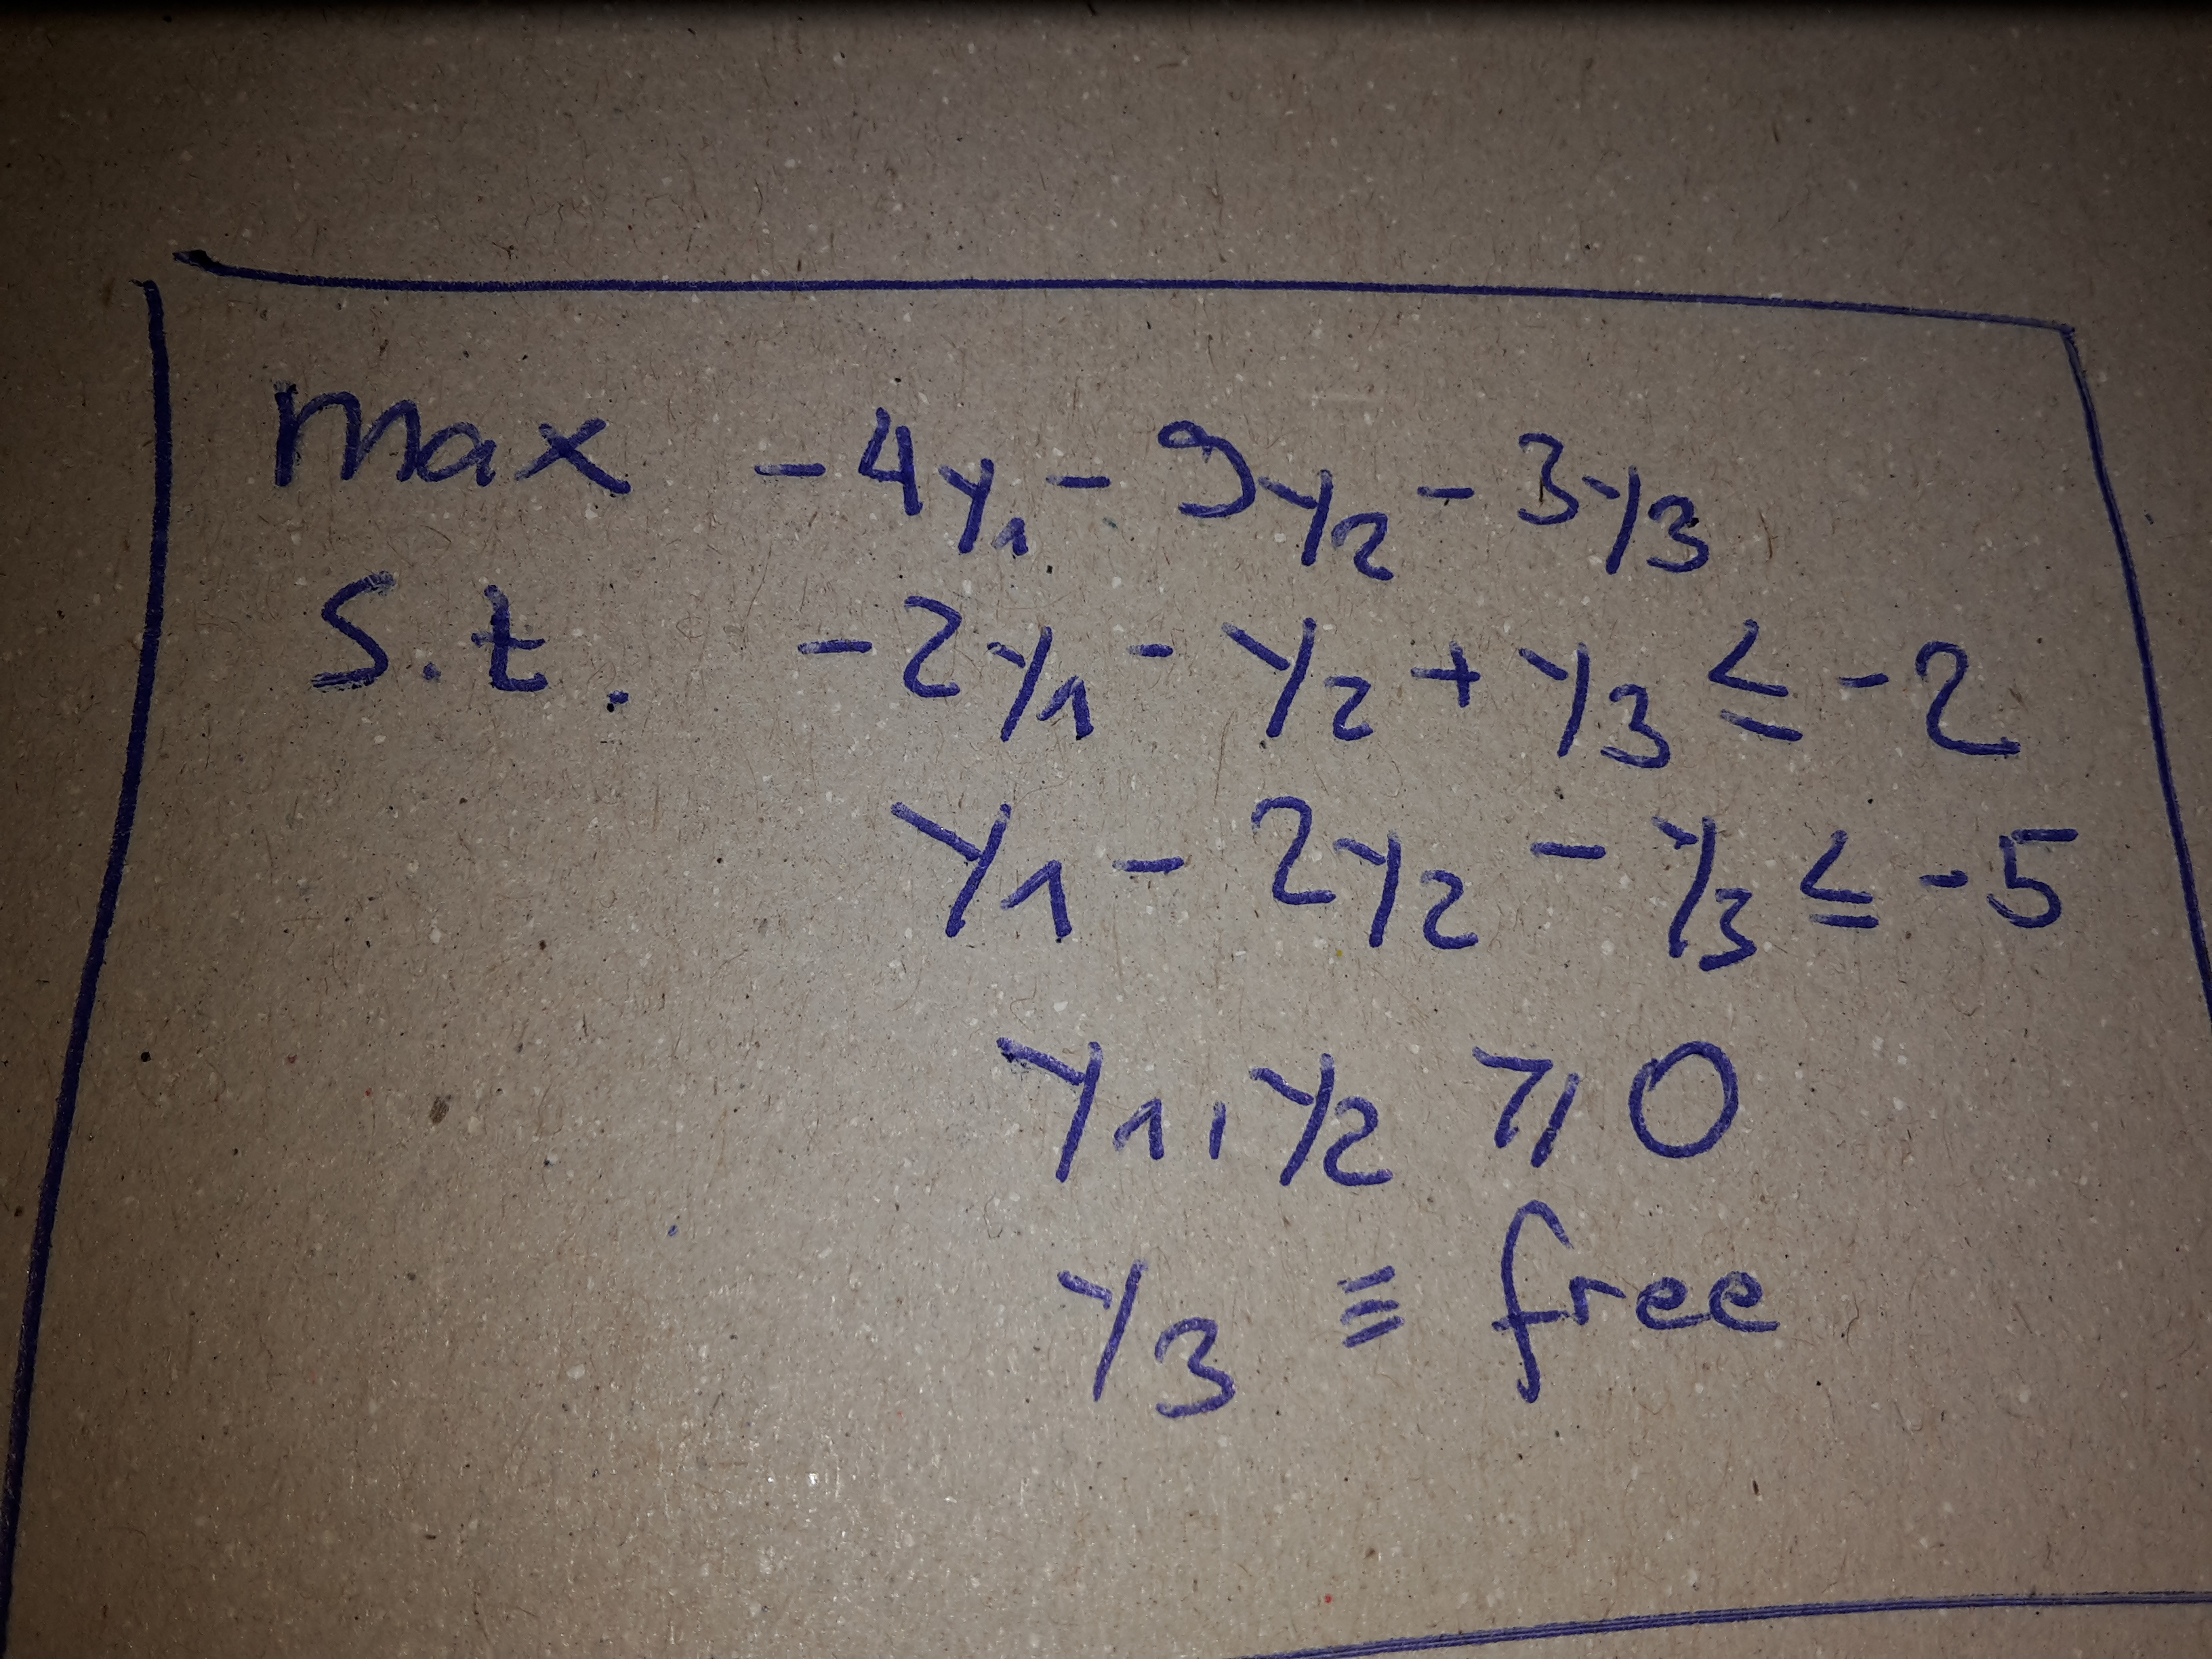 max -4y₁ - 9y₂ - 3y₃
s.t. -2y₁ - y₂ + y₃ ≤ -2
y₁ - 2y₂ - y₃ ≤ -5
y₁, y₂ ⩾ 0
y₃ ≡ free